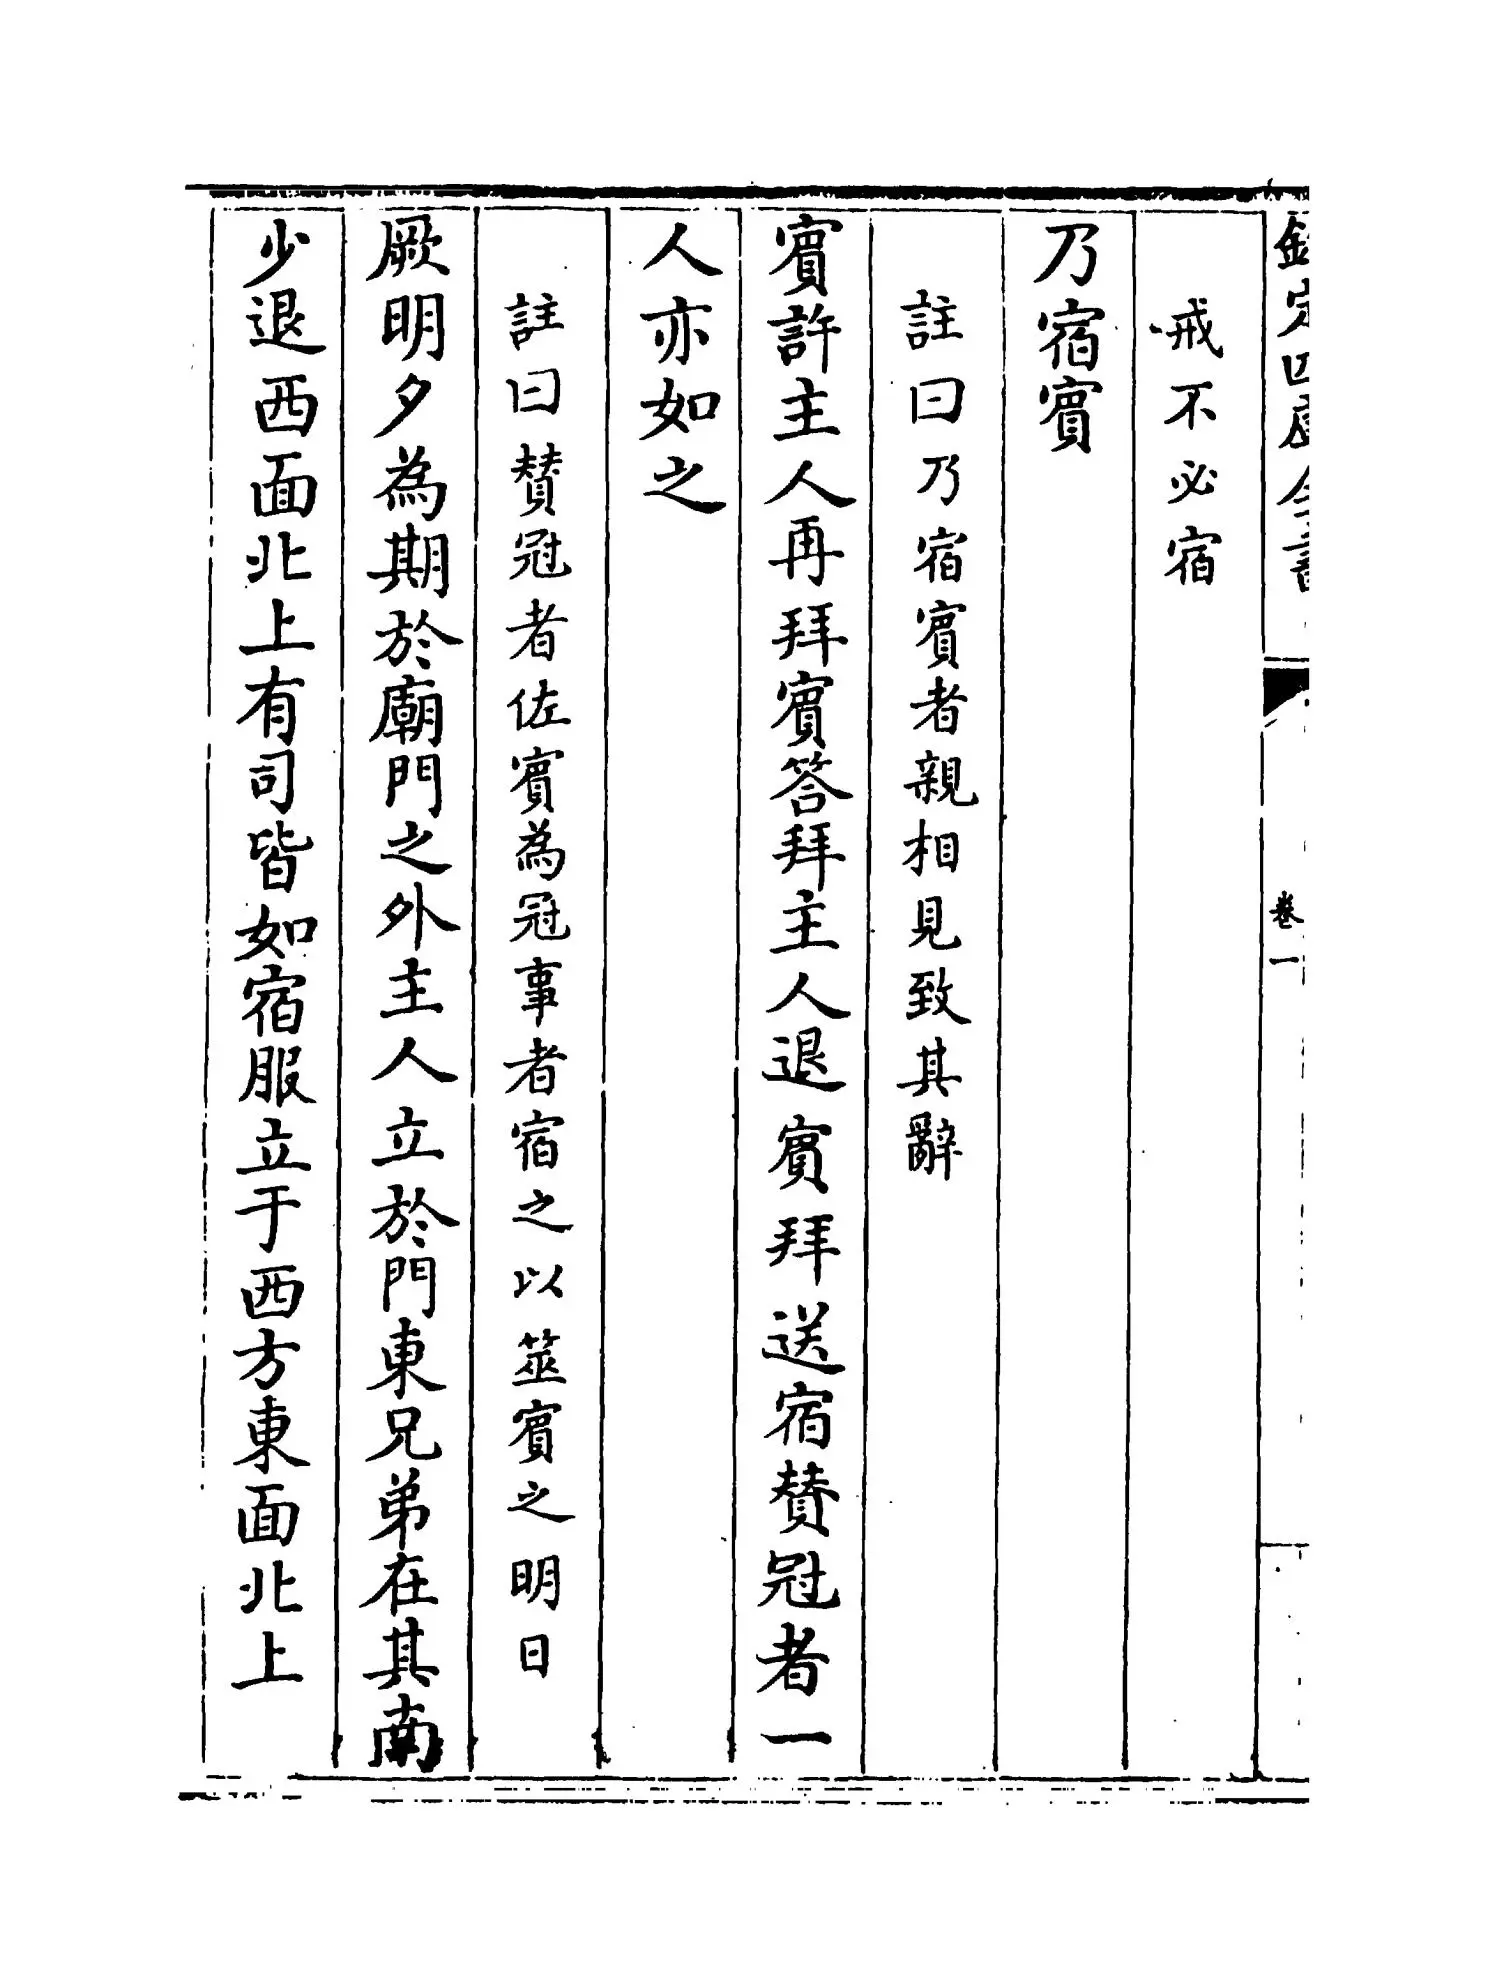 欽定四庫全書
卷一
戒不必宿
乃宿賓
註曰乃宿賓者親相見致其辭
賓許主人再拜賓答拜主人退賓拜送宿贊冠者一
人亦如之
註曰贊冠者佐賓為冠事者宿之以筮賓之明日
厥明夕為期於廟門之外主人立於門東兄弟在其南
少退西面北上有司皆如宿服立于西方東面北上